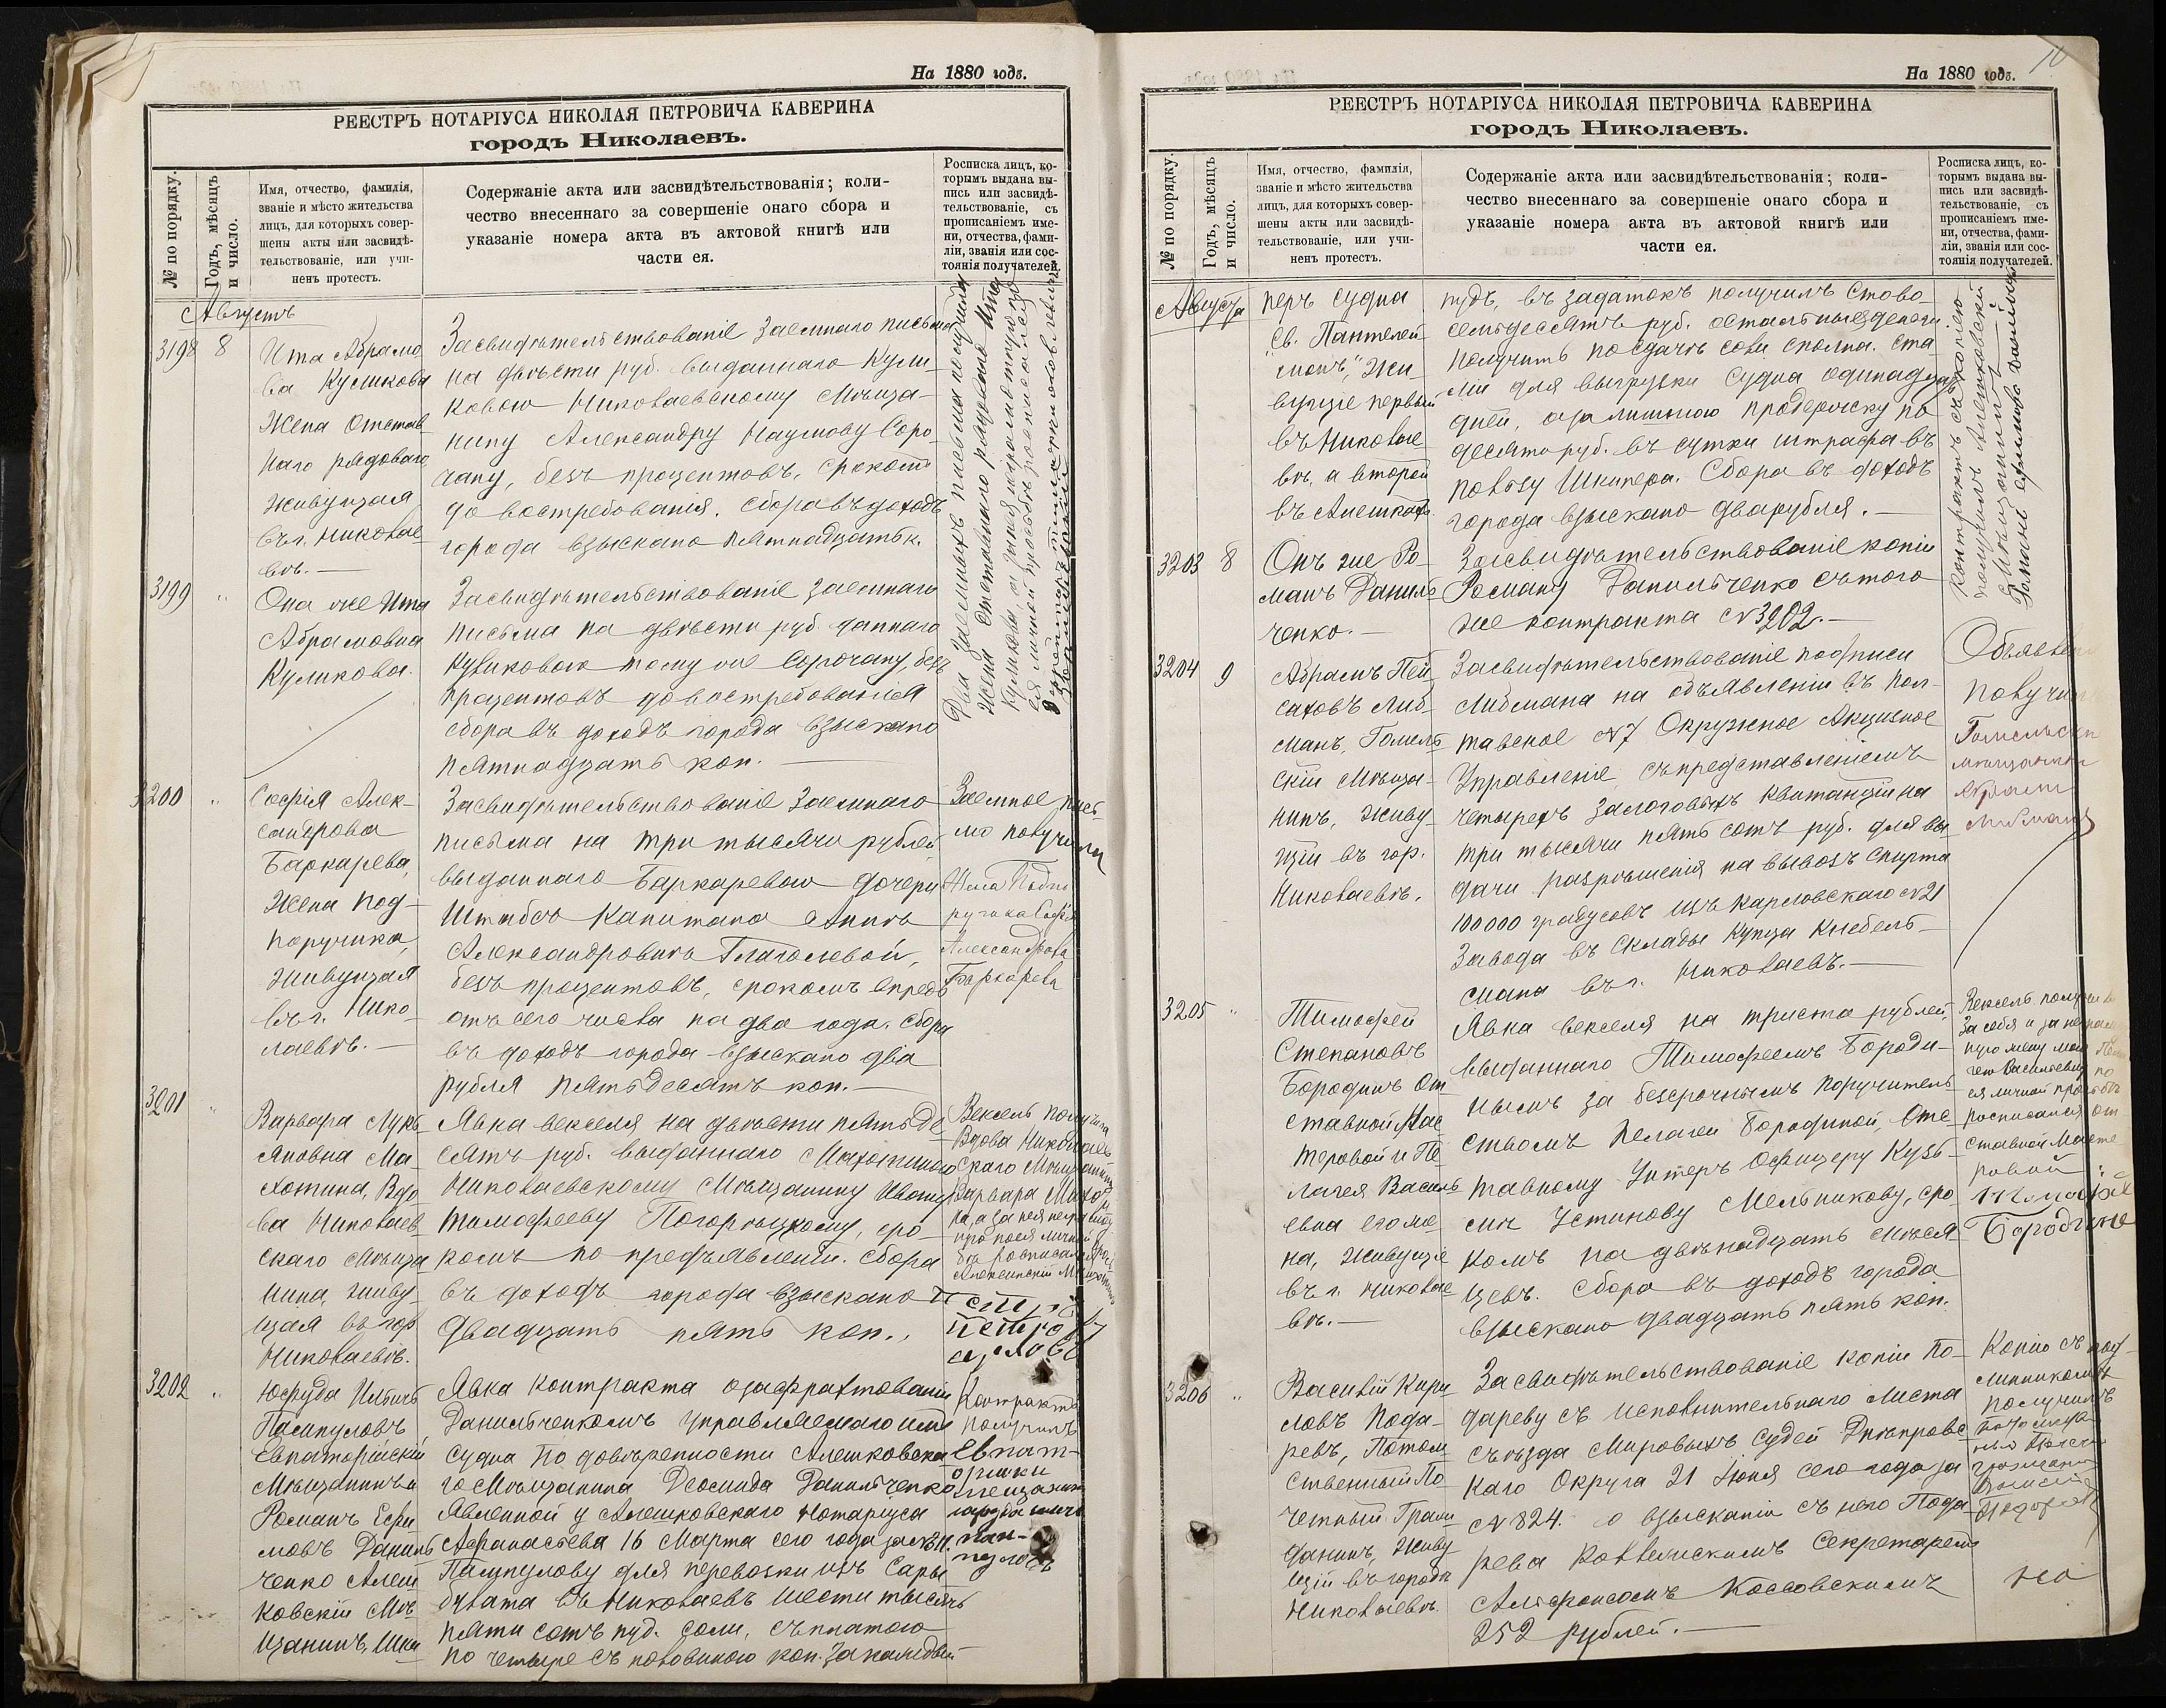 На 1880 годъ.
РЕЕСТРЪ НОТАРІУСА НИКОЛАЯ ПЕТРОВИЧА КАВЕРИНА
городъ Николаевъ.
№ по порядку.
Годъ, мѣсяцъ и число.
Имя, отчество, фамилія,
званіе и мѣсто жительства
лицъ, для которыхъ совер-
шены акты или засвидѣ-
тельствованіе, или учи-
ненъ протестъ.
Содержаніе акта или засвидѣтельствованія; коли-
чество внесеннаго за совершеніе онаго сбора и
указаніе номера акта въ актовой книгѣ или
части ея.
Росписка лицъ, ко-
торымъ выдана вы-
пись или засвидѣ-
тельствованіе, съ
прописаніемъ име-
ни, отчества, фами-
ліи, званія или сос-
тоянія получателей.
Августъ
3198
8
Ита Абрамо
ва Куликова
Жена Отстав
наго рядоваго
живущая
въ г. Николае
вѣ.
Засвидѣтельствованіе заемнаго письма
на двѣсти руб. выданнаго Кули-
ковою Николаевскому Мѣща-
нину Александру Наумову Соро-
чану, безъ процентовъ, срокомъ
до востребованія. Сбора въ доходъ
города взыскано пятнадцать к.
Два заемныхъ письма получила
жена отставнаго рядоваго Ита
Куликова, а за нея неграмотную по
ея личной просьбѣ росписался
3199
"
Она же Ита
Абрамовна
Куликова.
Засвидѣтельствованіе заемнаго
письма на двѣсти руб. даннаго
Куликовою тому же Сорочану, безъ
процентовъ до востребованія
сбора въ доходъ города взыскано
пятнадцать коп.
3200
"
Софія Алек-
сандрова
Баркарева,
Жена под-
поручика,
живущая
въ г. Нико-
лаевѣ.
Засвидѣтельствованіе Заемнаго
письма на три тысячи рублей
выданнаго Баркаревою дочери
Штабсъ Капитана Аннѣ
Александровнѣ Глаголевой,
безъ процентовъ, срокомъ впредь
отъ сего числа на два года. Сбора
въ доходъ города взыскано два
рубля пятьдесятъ коп.
Заемное пись-
мо получила
Жена Подпо
ручика Софія
Александрова
Баркарева
3201
"
Варвара Лукь
яновна Ма-
хотина, Вдо
ва Николаев
скаго Мѣща
нина, живу-
щая въ гор.
Николаевѣ.
Явка векселя на двѣсти пятьде
сятъ руб. выданнаго Махотиною
Николаевскому Мѣщанину Ивану
Тимофееву Погорѣцкому, сро-
комъ по предъявленіи. Сбора
въ доходъ города взыскано
двадцать пять коп.
Вексель получила
Вдова Николаев
скаго Мѣщанина
Варвара Махоти
на, а за нея неграмот
Петръ
Петровъ
3202
"
Юфуда Ильичъ
Пампуловъ
Евпаторійскій
Мѣщанинъ и
Романъ Ефи
мовъ Даниль
ченко Алеш
ковскій Мѣ
щанинъ, Шки
Явка контракта о зафрахтованіи
Данильченкомъ управляемаго имъ
судна по довѣренности Алешковска
го Мѣщанина Деомида Данильченко
Явленной у Алешковскаго Нотаріуса
Афанасьева 16 Марта сего года за №
Пампулову для перевозки изъ Сары
булата въ Николаевъ шести тысячъ
пяти сотъ пуд. соли, съ платою
по четыре съ половиною коп. за каждый
Контрактъ
получилъ
Евпат-
орійски
мещанинъ
Юфуда Ильичъ
Пам-
пуловъ
На 1880 годъ.
10
РЕЕСТРЪ НОТАРІУСА НИКОЛАЯ ПЕТРОВИЧА КАВЕРИНА
городъ Николаевъ.
№ по порядку.
Годъ, мѣсяцъ и число.
Имя, отчество, фамилія,
званіе и мѣсто жительства
лицъ, для которыхъ совер-
шены акты или засвидѣ-
тельствованіе, или учи-
ненъ протестъ.
Содержаніе акта или засвидѣтельствованія; коли-
чество внесеннаго за совершеніе онаго сбора и
указаніе номера акта въ актовой книгѣ или
части ея.
Росписка лицъ, ко-
торымъ выдана вы-
пись или засвидѣ-
тельствованіе, съ
прописаніемъ име-
ни, отчества, фами-
ліи, званія или сос-
тоянія получателей.
Августа
перъ судна
"Св. Пантелей
монъ", жи-
вущіе первый
въ Николае
вѣ, а второй
въ Алешкахъ
пудъ, въ задатокъ получилъ сто во-
семьдесятъ руб. остальныя деньги
получить по сдачѣ соли сполна. Ста
ліи для выгрузки судна одинадцать
дней, а за лишнюю продержку по
десяти руб. въ сутки штрафа въ
пользу Шкипера. Сбора въ доходъ
города взыскано два рубля.
Контрактъ съ копіею
получилъ Алешковскій
Мѣщанинъ
Романъ Ефимовъ Данильченко
3203
8
Онъ же Ро-
манъ Даниль
ченко.
Засвидѣтельствованіе копіи
Роману Данильченко съ того
же контракта №3202.
3204
9
Абрамъ Пей-
саховъ Либ-
манъ, Гомель
скій Мѣща-
нинъ, живу-
щій въ гор.
Николаевѣ.
Засвидѣтельствованіе подписи
Либмана на объявленіи въ Пол-
тавское №7 Окружное Акцизное
Управленіе съ представленіемъ
четырехъ залоговыхъ квитанцій на
три тысячи пять сотъ руб. для вы
дачи разрѣшенія на вывозъ спирта
100000 градусовъ изъ Карловскаго №21
Завода въ склады купца Кнебель-
мана въ г. Николаевъ.
Объявлен
получи
Гомельски
мещанин
Абрам
Либман
3205
"
Тимофей
Степановъ
Бородинъ От
ставной Мас
теровой и Пе
лагея Василь
евна его же
на, живущіе
въ г. Николае
вѣ.
Явка векселя на триста рублей,
выданнаго Тимофеемъ Бороди-
нымъ за безсрочнымъ поручитель
ствомъ Пелагеи Бородиной, Отс-
тавному Унтеръ Офицеру Кузь-
мѣ Устинову Мельникову, сро
комъ на двѣнадцать мѣся
цевъ. Сбора въ доходъ города
взыскано двадцать пять коп.
Вексель получи
за себя и за неграм
ную жену мою Пела
гею Васильевну по
ея личной просьбѣ
росписался От
ставной Масте
ровой
Тимофей
Бородине
3206
"
Василій Кири
ловъ Пода-
ревъ, Потом
ственный По
четный Граж
данинъ, живу
щій въ городѣ
Николаевѣ.
Засвидѣтельствованіе копіи По-
дареву съ исполнительнаго листа
Съѣзда Мировыхъ Судей Днѣпровс
каго Округа 21 Іюня сего года за
№ 824. о взысканіи съ него Пода
рева Коллежскимъ Секретаремъ
Альфонсомъ Коссовскимъ
252 рублей.
Копію съ под-
линникомъ
получилъ
Потомств
гражданин
Василій
Подаревъ